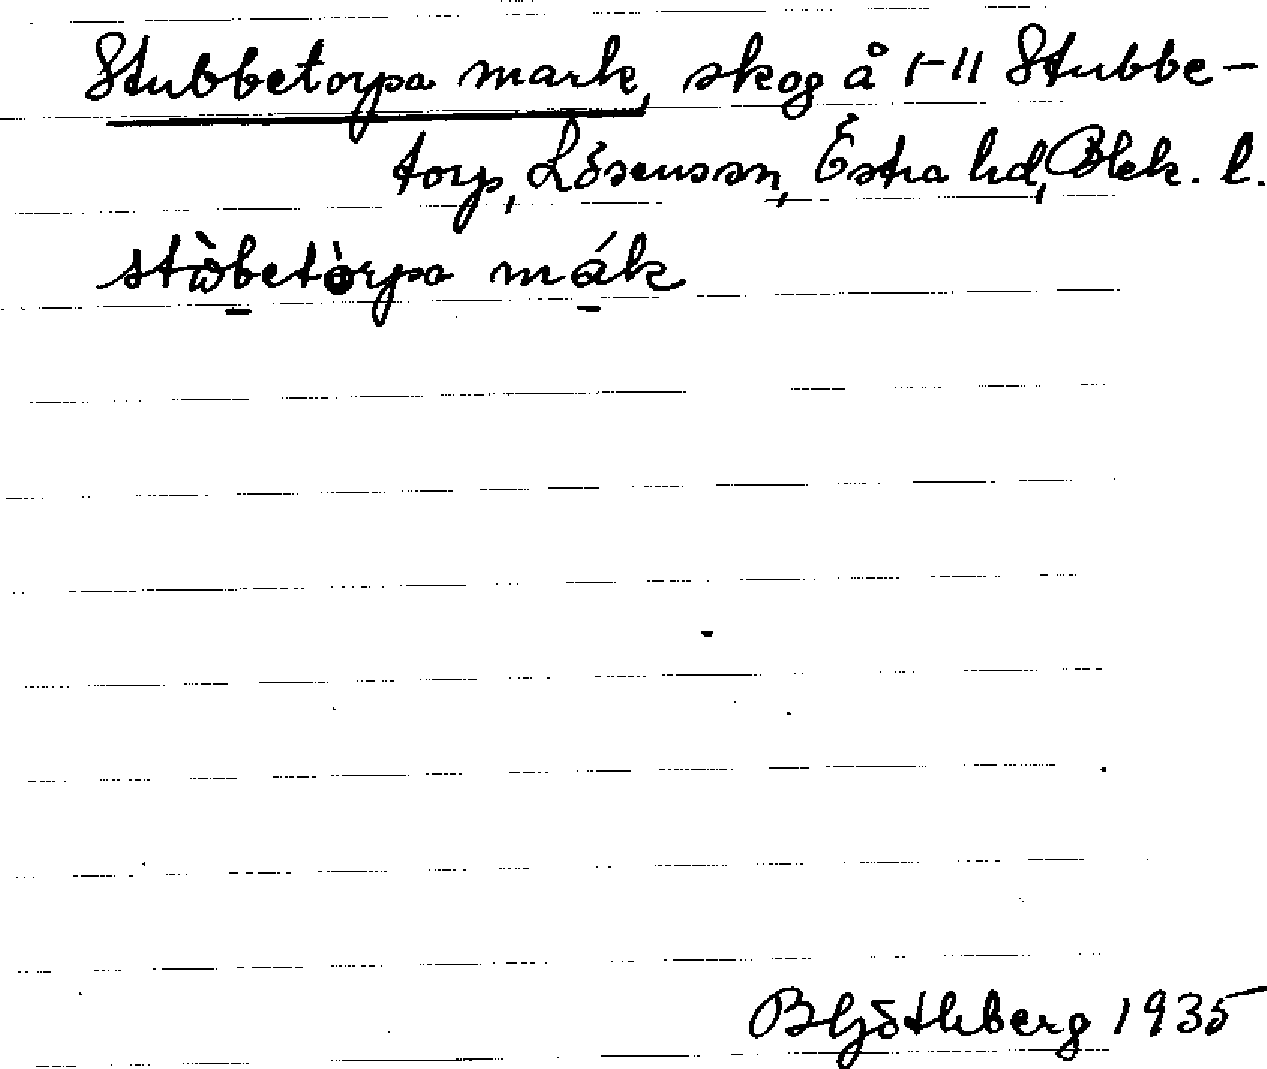 Stubbetorpa mark, skog å 1-11 Stubbe-
torp, Lösenssn, Östra hd, Blek. l.
stὼbetòrpa mák
B Hjöthberg 1935